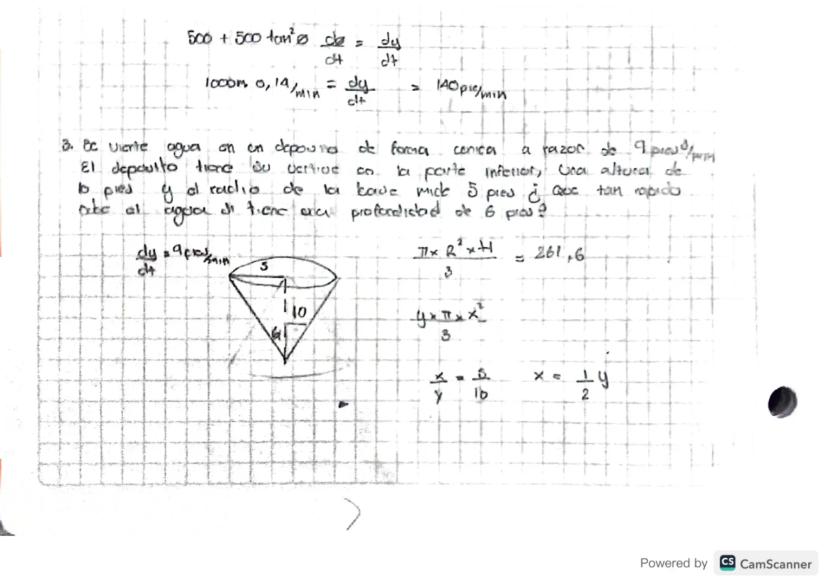 500 + 500 tan²ø dø/dt = dy/dt
1000 m 0,14/min = dy/dt = 140 pies/min
3. Se vierte agua en un deposito de forma conica a razon de 9 pies³/min
El deposito tiene su vertice en la parte inferior, una altura de
10 pies y el radio de la base mide 5 pies ¿ Que tan rapido
sube el agua si tiene una profundidad de 6 pies?
dy/dt = 9 pies/min
5
10
6
π x R² x H / 3 = 261,6
y x π x x² / 3
x/y = 5/10 x = 1/2 y
Powered by CS CamScanner